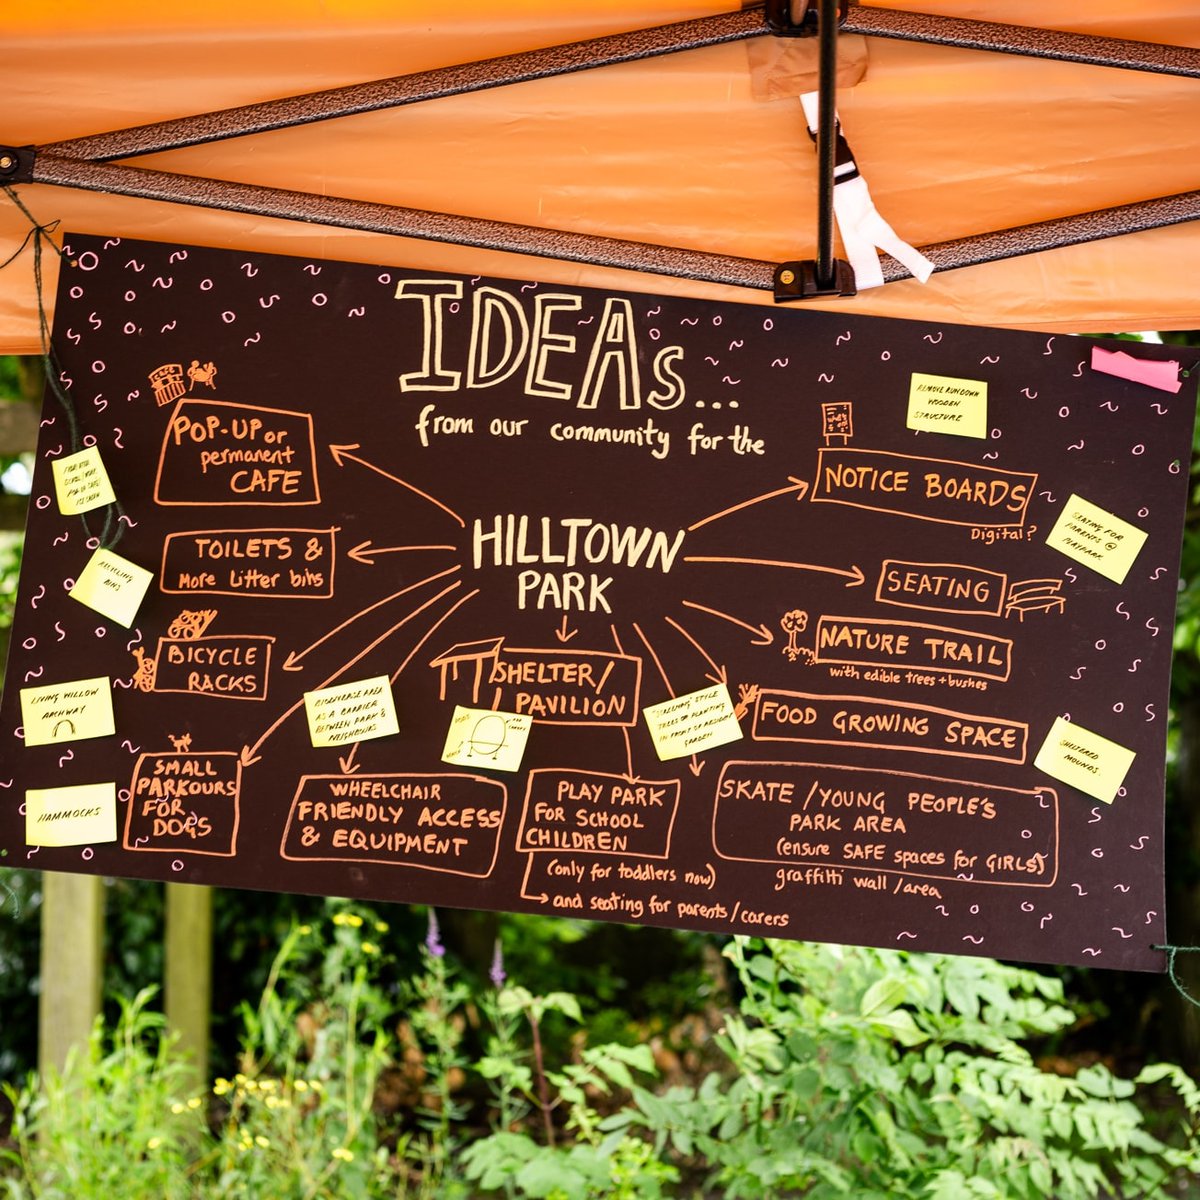 IDEAs...
from our community for the
HILLTOWN
PARK
CAFE
POP-UP or
permanent
CAFE
TOILETS &
More Litter bins
BICYCLE
RACKS
SMALL
PARKOURS
FOR
DOGS
WHEELCHAIR
FRIENDLY ACCESS
& EQUIPMENT
SHELTER/
PAVILION
PLAY PARK
FOR SCHOOL
CHILDREN
(only for toddlers now)
and seating for parents/carers
SKATE /YOUNG PEOPLE'S
PARK AREA
(ensure SAFE spaces for GIRLS)
graffiti wall/area
FOOD GROWING SPACE
NATURE TRAIL
with edible trees + bushes
SEATING
what's
on!
NOTICE BOARDS
Digital?
REMOVE RUNDOWN
WOODEN
STRUCTURE
SEATING FOR
PARENTS @
PLAYPARK
SHELTERED
MOUNDS.
RECYCLING
BINS
LIVING WILLOW
ARCHWAY
HAMMOCKS
BIODIVERSE AREA
AS A BARRIER
BETWEEN PARK &
NEIGHBOURS
STYLE
TREES OR PLANTING
IN FRONT OF
GARDEN